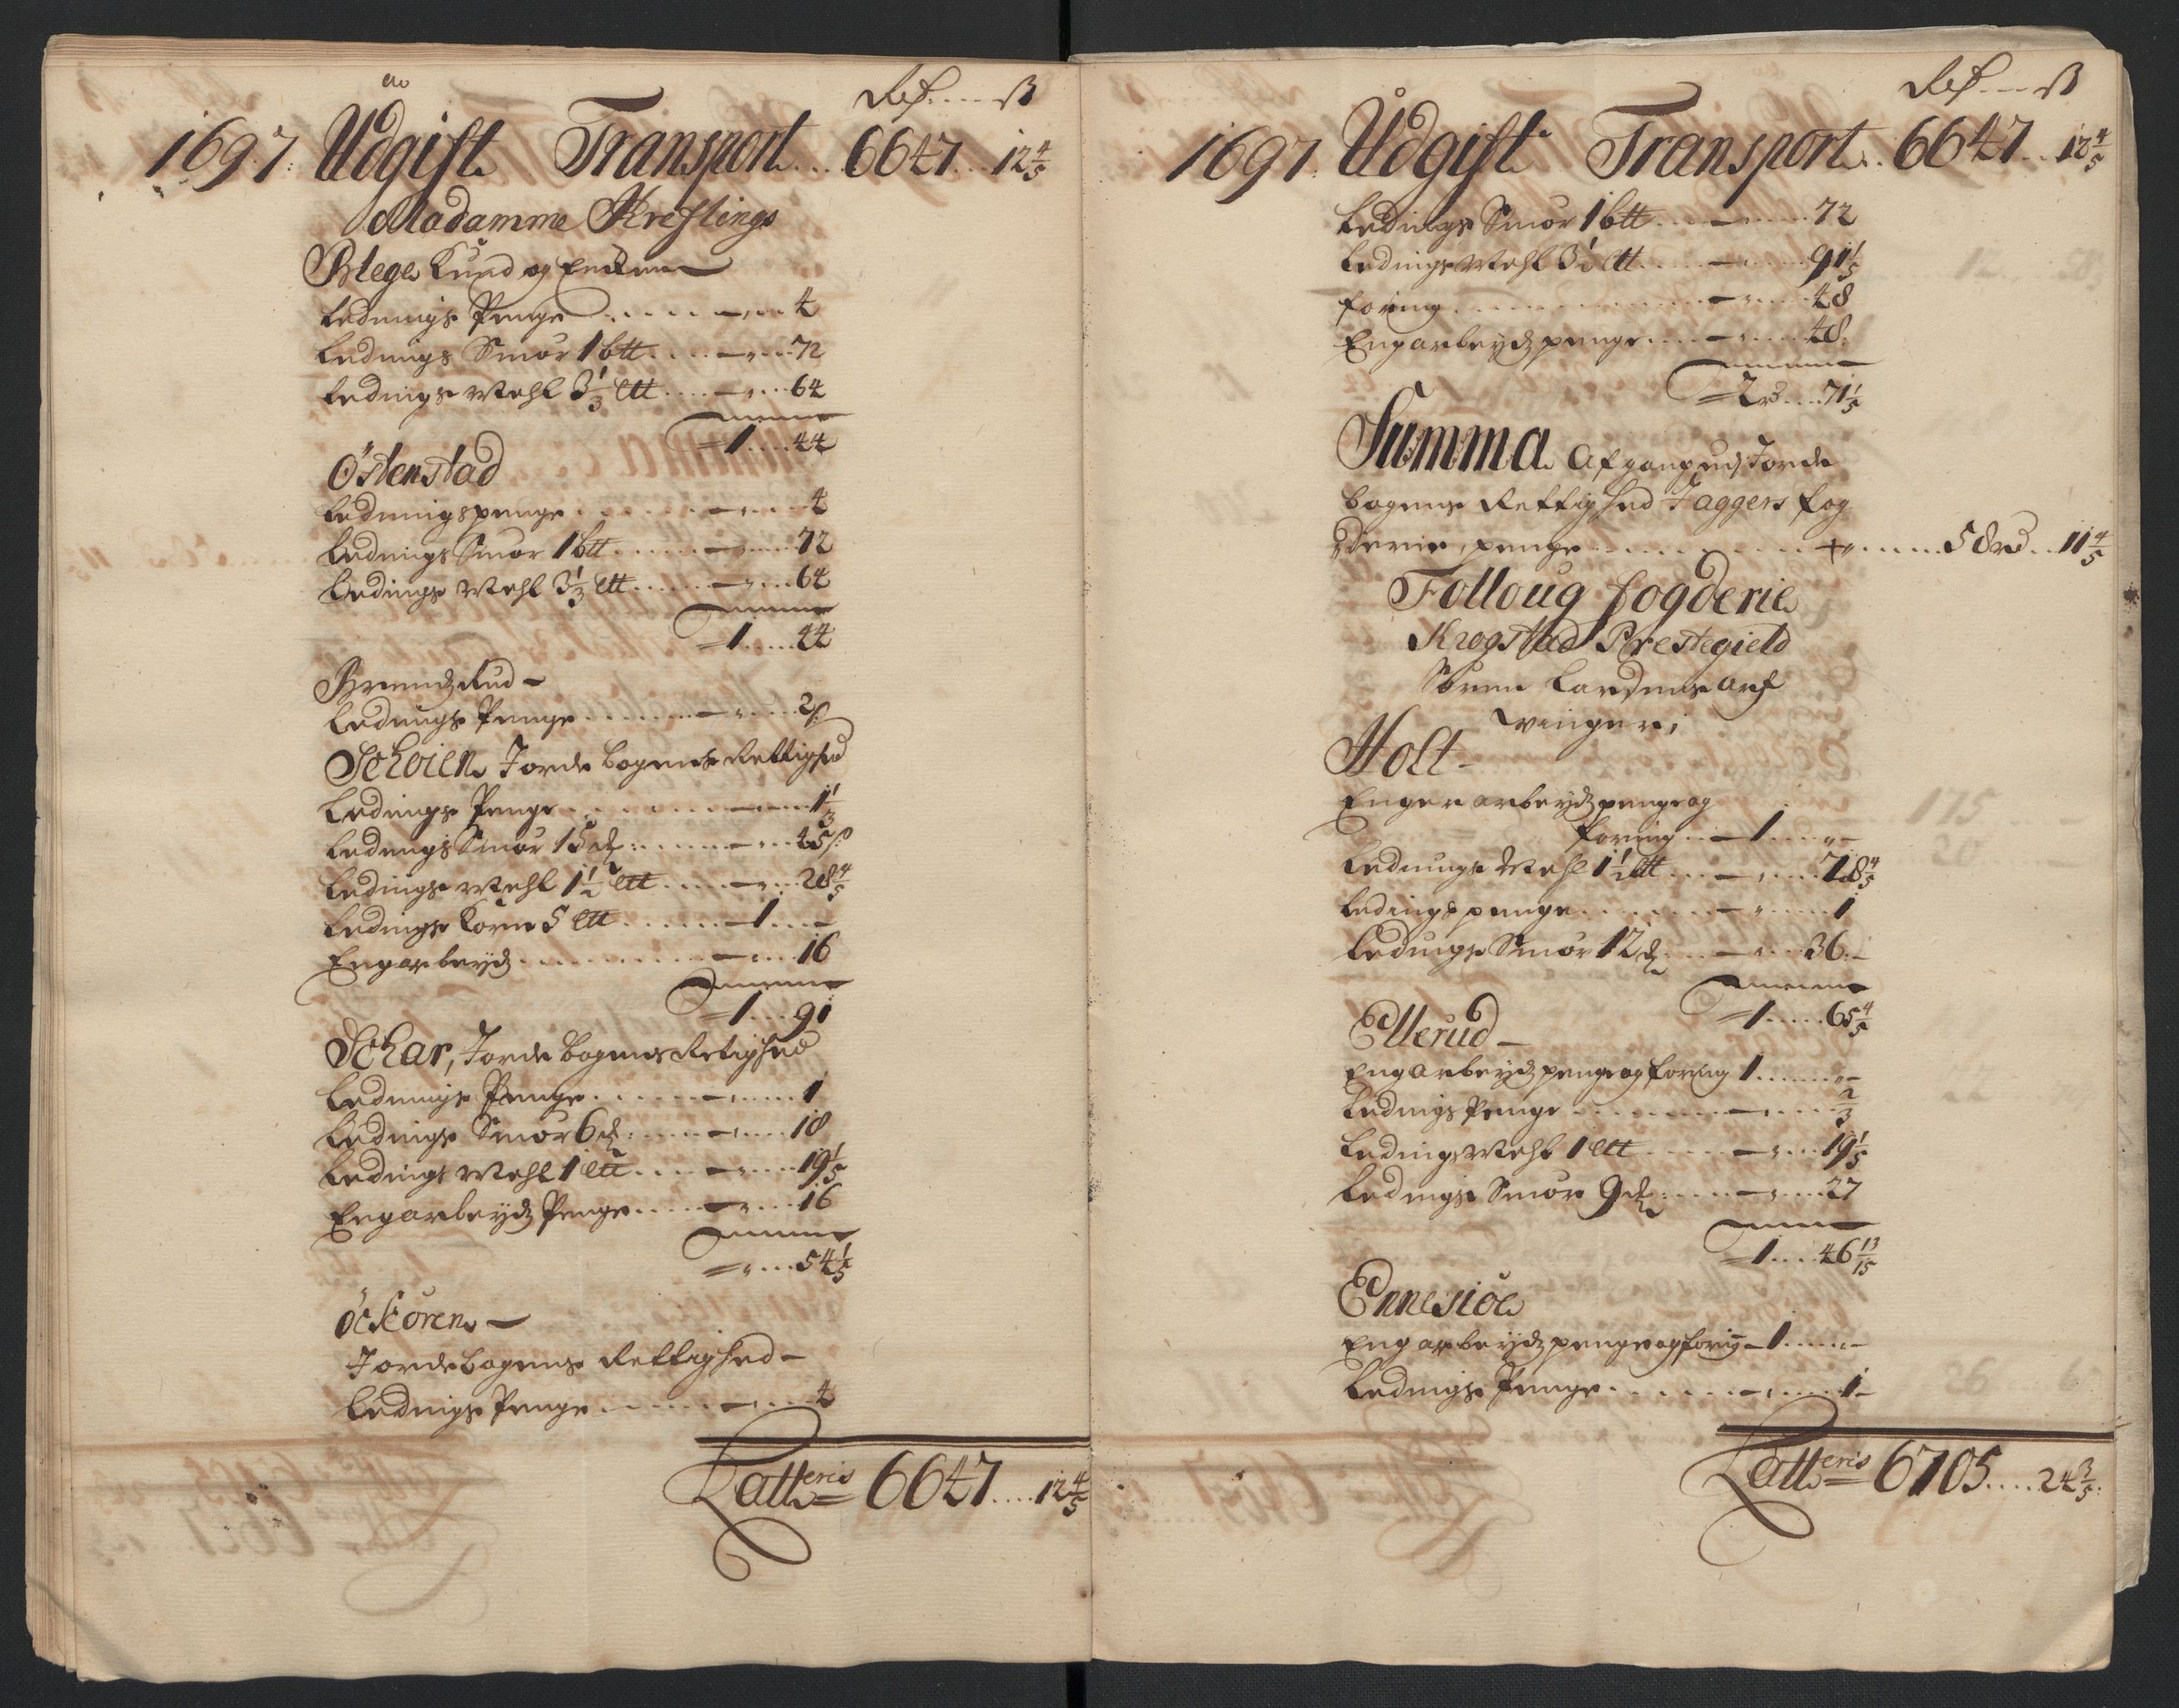 Ao
Rdr. .... ß
1697. Udgift Transport .... 6647 ... 12 4/5
Madamme Kreflings
Blege Lund og Enkene
Ledings Penge ..... 4
Ledings Smør 1 btt ..... 72
Ledings Mehl 3 1/3 Ltt ..... 64
1 .... 44
Östenstad
Ledings penge ..... 4
Ledings Smør 1 btt ..... 72
Ledings Mehl 3 1/3 Ltt ..... 64
1 .... 44
Ledings Penge ..... 2 ß
Schoien Jorde bogens Rettighed
Ledings Penge ..... 1 1/3
Ledings Smør 15 ..... 45 ß
Ledings Mehl 1 1/2 Ltt ..... 28 4/5
Ledings Korn 5 Ltt ..... 1 .... -
Engarbeyd ..... 16
1 .... 91
Schar, Jorde bogens Retighed
Ledings Penge ..... 1
Ledings Smør 6 ..... 18
Ledings Mehl 1 Ltt ..... 19 1/5
Engarbeydz Penge ..... 16
" .... 54 1/5
Öckören
Jordebogens Rettighed
Ledings Penge ..... 4
Latteris 6647 .... 12 4/5
Rdr. ... ß
1697. Udgift Transport .. 6647 .. 12 4/5
Ledings Smør 1 btt ..... 72
Ledings Mehl 3 1/2 Ltt ..... 91 1/5
foring ..... 48
Engarbeydz penge ..... 48
2 rd .... 71 1/5
Summa Afgang udj Jorde
bogens Rettighed Jaggers fog
derie, penge ..... 58 rd .. 11 4/5
Folloug fogderie
Krogstad Prestegield
Søren Lardens arf
winger;
Holt
Enger arbeydz penge og
foring ..... 1 .... "
Ledings Mehl 1 1/2 Ltt ..... 28 4/5
Ledings penge ..... 1
Ledings Smør 12 ..... 36
1 .... 65 4/5
Ellerud
Engarbeydz penge og foring 1 .... "
Ledings Penge ..... 2/3
Ledings Mehl 1 Ltt ..... 19 1/5
Ledings Smør 9 ..... 27
1 .... 46 13/15
Ennesiöe
Engarbeydz penge og foring 1 .... "
Ledings Penge ..... 1
Latteris 6705 .... 24 3/5